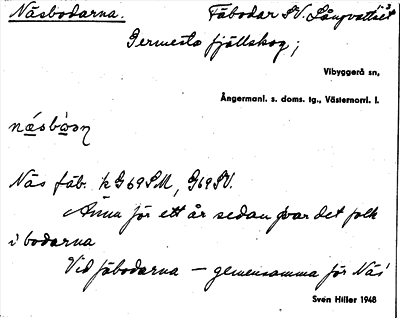 Näsbodarna. Fäbodar SV. Långvattnet
Germesta fjällskog;
Vibyggerå sn,
Ångermanl. s. doms. tg., Västernorrl. l.
Näs fäb. k G69SM, G69SV.
Ännu för ett år sedan var det folk
i bodarna
Vid fäbodarna – gemensamma för Näs
Sven Hiller 1948